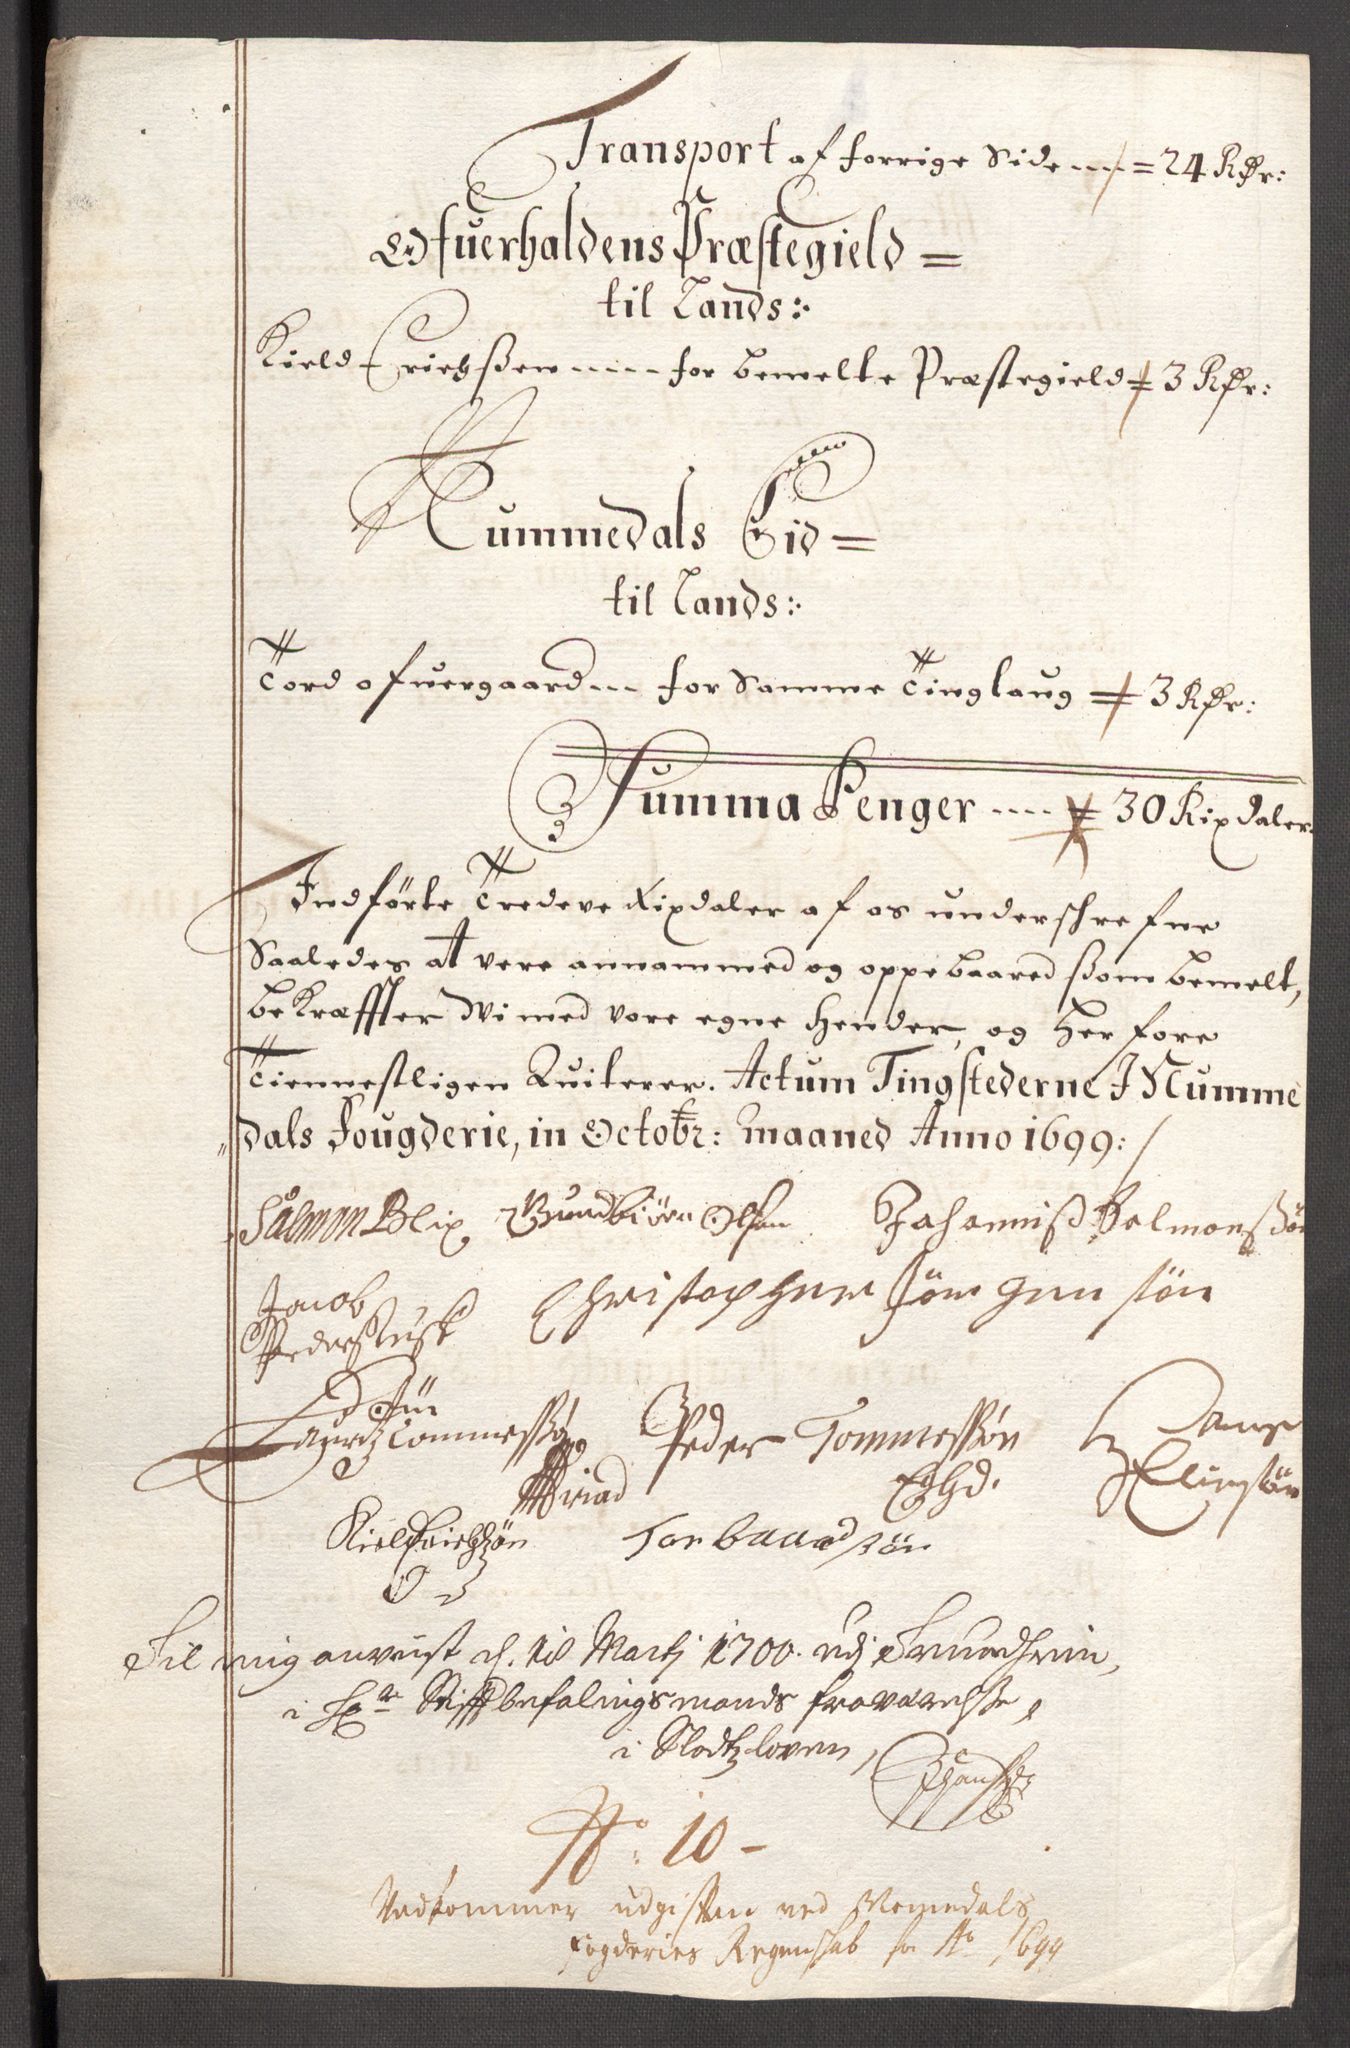 Transport af forrige Side ---- = 24 Rdr:
Ofuerhaldens Præstegield =
til Lands:
Kield Erichssen ----- for bemelte Præstegield = 3 Rdr:
Nummedals Eid =
til Lands:
Tord ofuergaard --- for Samme Tinglaug = 3 Rdr:
Summa Penger ---- = 30 Rixdaler
Indførte Tredeve Rixdaler af os underschrefne
Saaledes at vere annammed og oppebaared ssom bemelt,
bekræffter Wi med vore egne Hender, og Her fore
Tiennestligen Quiterer. Actum Tingstederne I Numme
dals Fougderie, in Octobr: maaned Anno 1699:/
Salmon Blix Gundbiørn Olsen Johanniss Salmonssøn
Jacob
Pederss
Christopher Jørgensøn
Lauritz Tommessøn Peder Tommessøn
Kield Erichssøn Tor baardsøn
Til mig anvist d. 18 Martj 1700. udj Trundheim,
i Hr Stifftbefalingsmands fraværelsse,
i Slodtzloven,
No: 10 -
Vedkommer udgifften ved Nomedals
fogderies Regenskab for Ao 1699